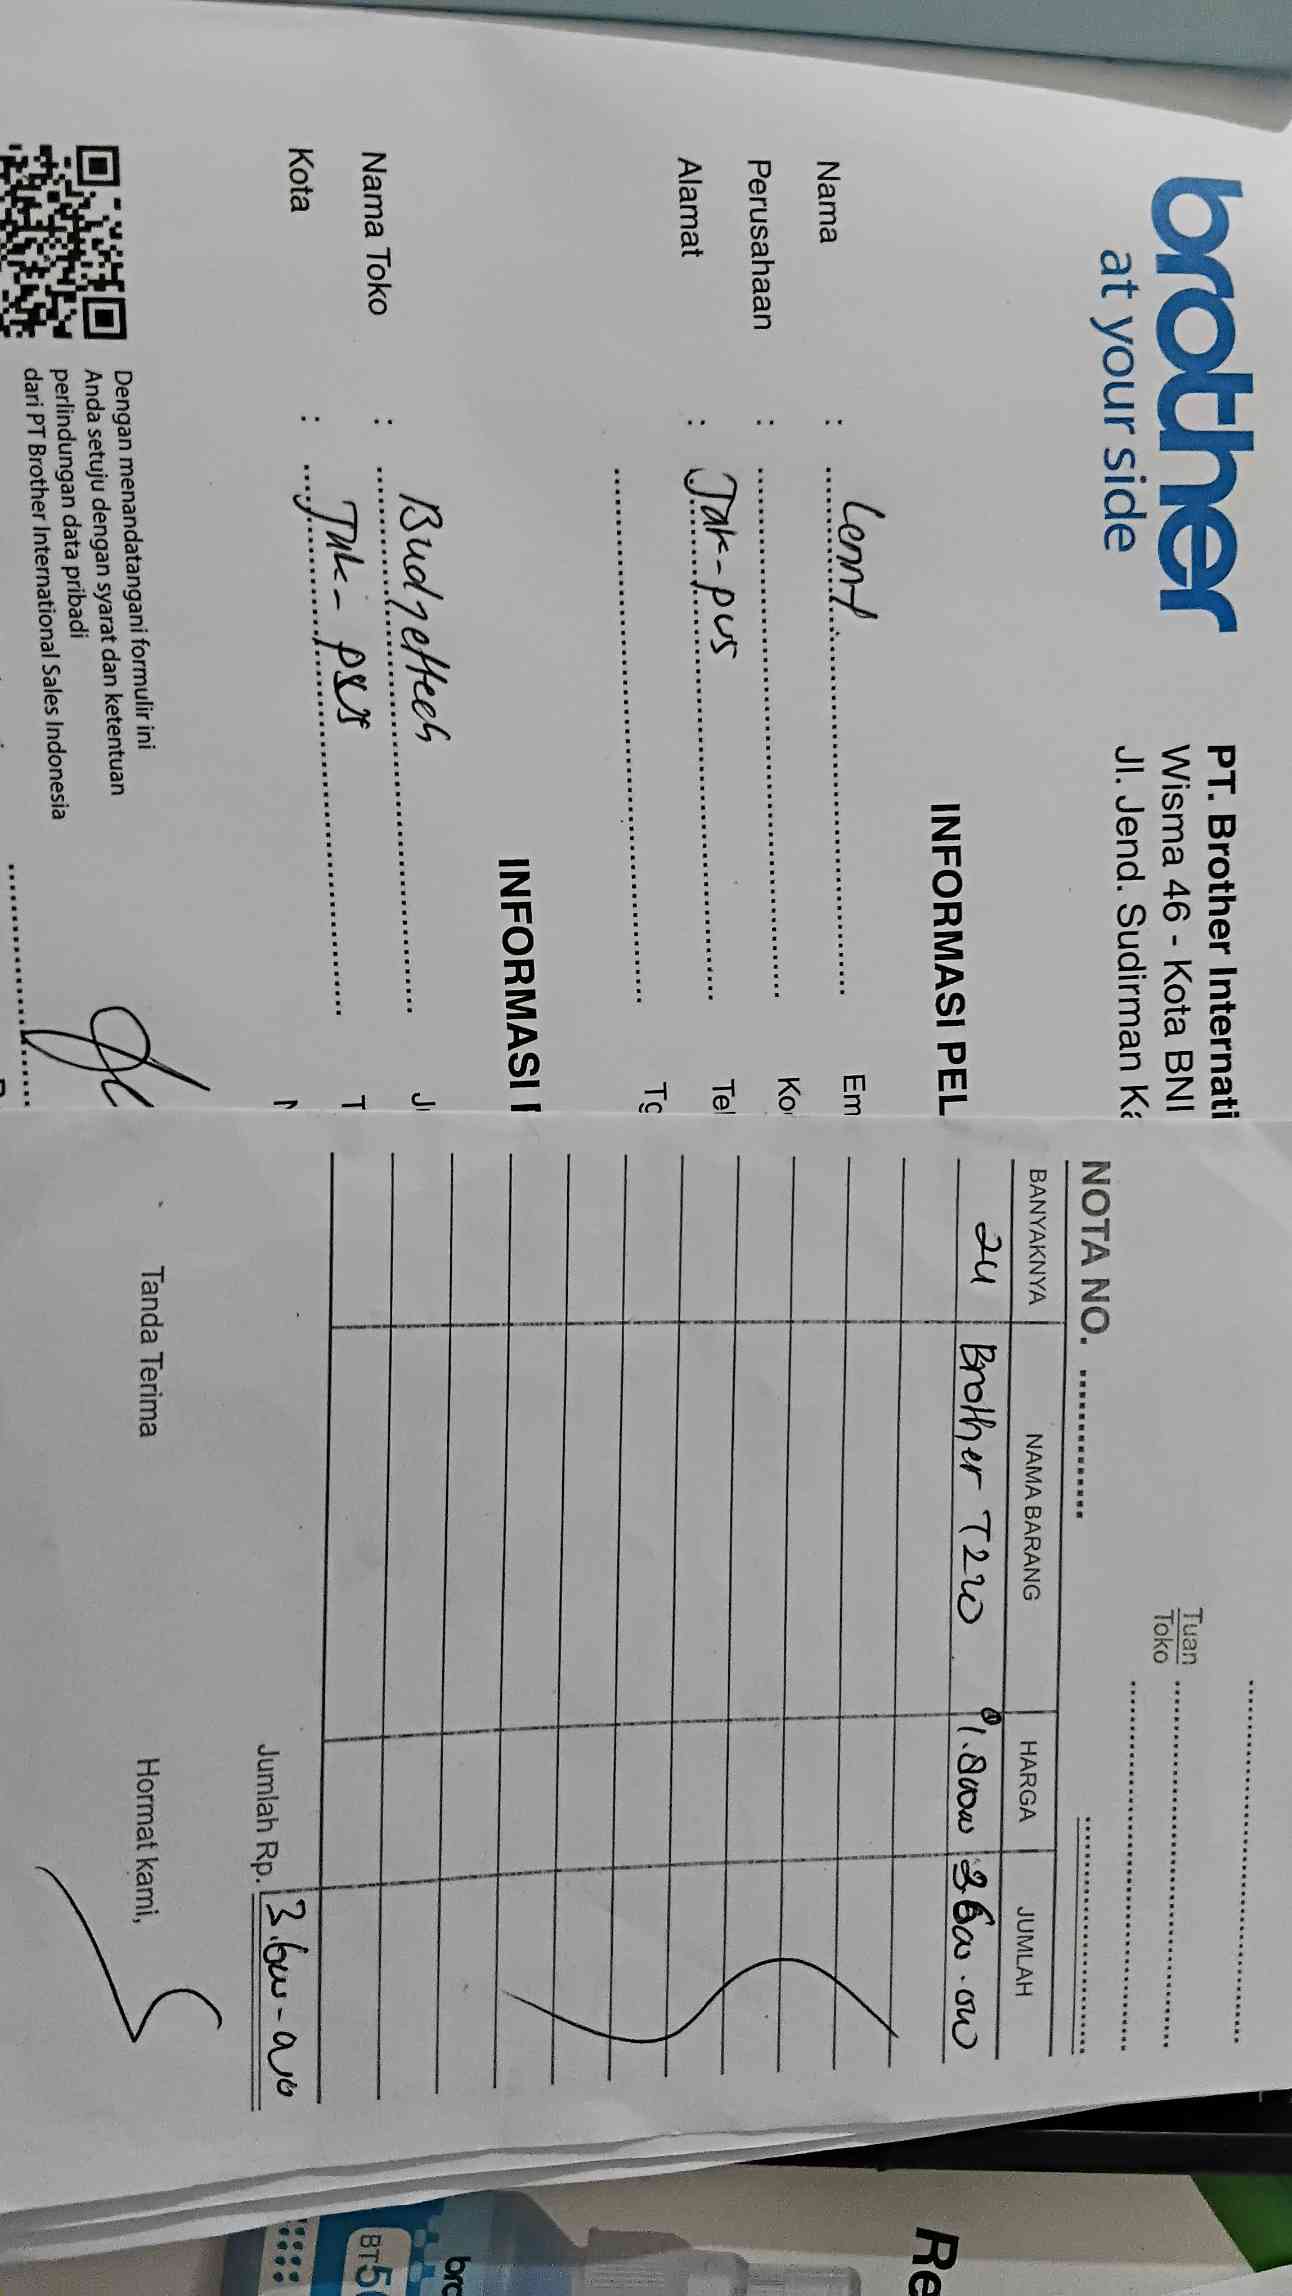 brother
at your side
PT. Brother Internati
Wisma 46 - Kota BNI
Jl. Jend. Sudirman Ka
INFORMASI PEL
Nama : Lenny
Em
Perusahaan :
Ko
Alamat : Jak-pus
Tel
Tg
INFORMASI
Nama Toko : Budgettech
Kota : Jak-pus
T
Dengan menandatangani formulir ini
Anda setuju dengan syarat dan ketentuan
perlindungan data pribadi
dari PT Brother International Sales Indonesia
Tuan
Toko
NOTA NO.
BANYAKNYA NAMA BARANG HARGA JUMLAH
2u Brother T220
Jumlah Rp.
Tanda Terima Hormat kami,
Re
bro
BT5